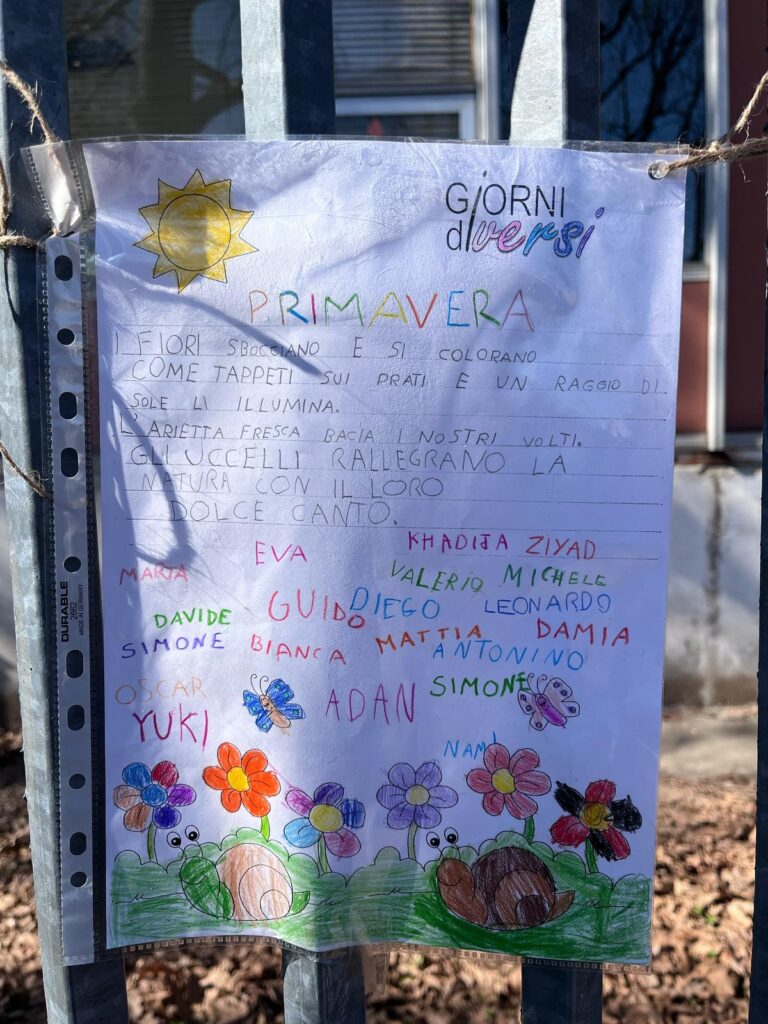 GiORNI
diversi
PRIMAVERA
I FIORI SBOCCIANO E SI COLORANO
COME TAPPETI SUI PRATI E UN RAGGIO DI
SOLE LI ILLUMINA.
L'ARIETTA FRESCA BACIA I NOSTRI VOLTI.
GLI UCCELLI RALLEGRANO LA
NATURA CON IL LORO
DOLCE CANTO.
EVA KHADIJA ZIYAD
MARTA VALERIO MICHELE
DAVIDE GUIDO DIEGO LEONARDO
SIMONE BIANCA MATTIA DAMIA
ANTONINO
OSCAR ADAN SIMONE
YUKI
NAMI
DURABLE
2662
MADE IN GERMANY